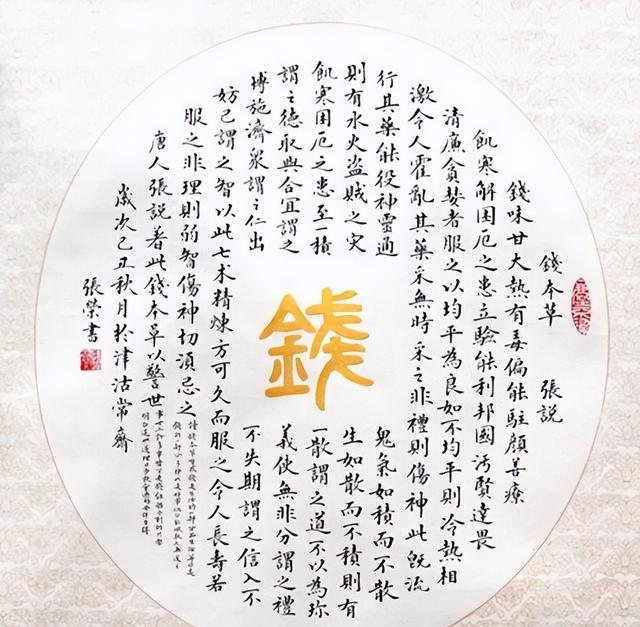 錢本草 張說
錢味甘大熱有毒偏能駐顏善療
飢寒解困厄之患立驗能利邦國污賢達畏
清廉貪婪者服之以均平為良如不均平則冷熱相
激令人霍亂其藥采無時采之非禮則傷神此既流
行其藥能役神靈通鬼氣如積而不散
則有水火盜賊之災生如散而不積則有
飢寒困厄之患至一積一散謂之道不以為珍
謂之德取與合宜謂之義使無非分謂之禮
博施濟衆謂之仁出不失期謂之信入不
妨己謂之智以此七术精煉方可久而服之令人長壽若
服之非理則弱智傷神切須忌之
唐人張說著此錢本草以警世
歲次己丑秋月於津沽常齋
張榮書
錢